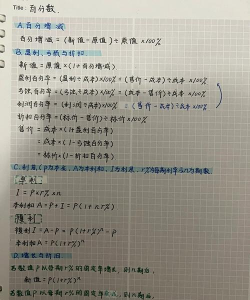 Title: 百分数.
A. 百分增减
百分增减 = (新值 - 原值) ÷ 原值 × 100%
B. 盈利、亏蚀与折扣
新值 = 原值 × (1 + 百分增减)
盈利百分率 = (盈利 ÷ 成本) × 100% = (售价 - 成本) ÷ 成本 × 100%
亏蚀百分率 = (亏蚀 ÷ 成本) × 100% = (成本 - 售价) ÷ 成本 × 100%
利润百分率 = (利润 ÷ 成本) × 100% = (售价 - 成本) ÷ 成本 × 100%
折扣百分率 = (标价 - 售价) ÷ 标价 × 100%
售价 = 成本 × (1 + 盈利百分率)
= 成本 × (1 - 亏蚀百分率)
= 标价 × (1 - 折扣百分率)
C. 利息 (P为本金, A为本利和, I为利息, r%为每期利率及n为期数)
[单利]
I = P × r% × n
本利和 A = P + I = P (1 + n r%)
[复利]
复利 I = A - P = P (1 + r%)ⁿ - P
本利和 A = P (1 + r%)ⁿ
D. 增长与折旧
若数值P以每期r%的固定率增长, 则n期后,
新值 = P (1 + r%)ⁿ